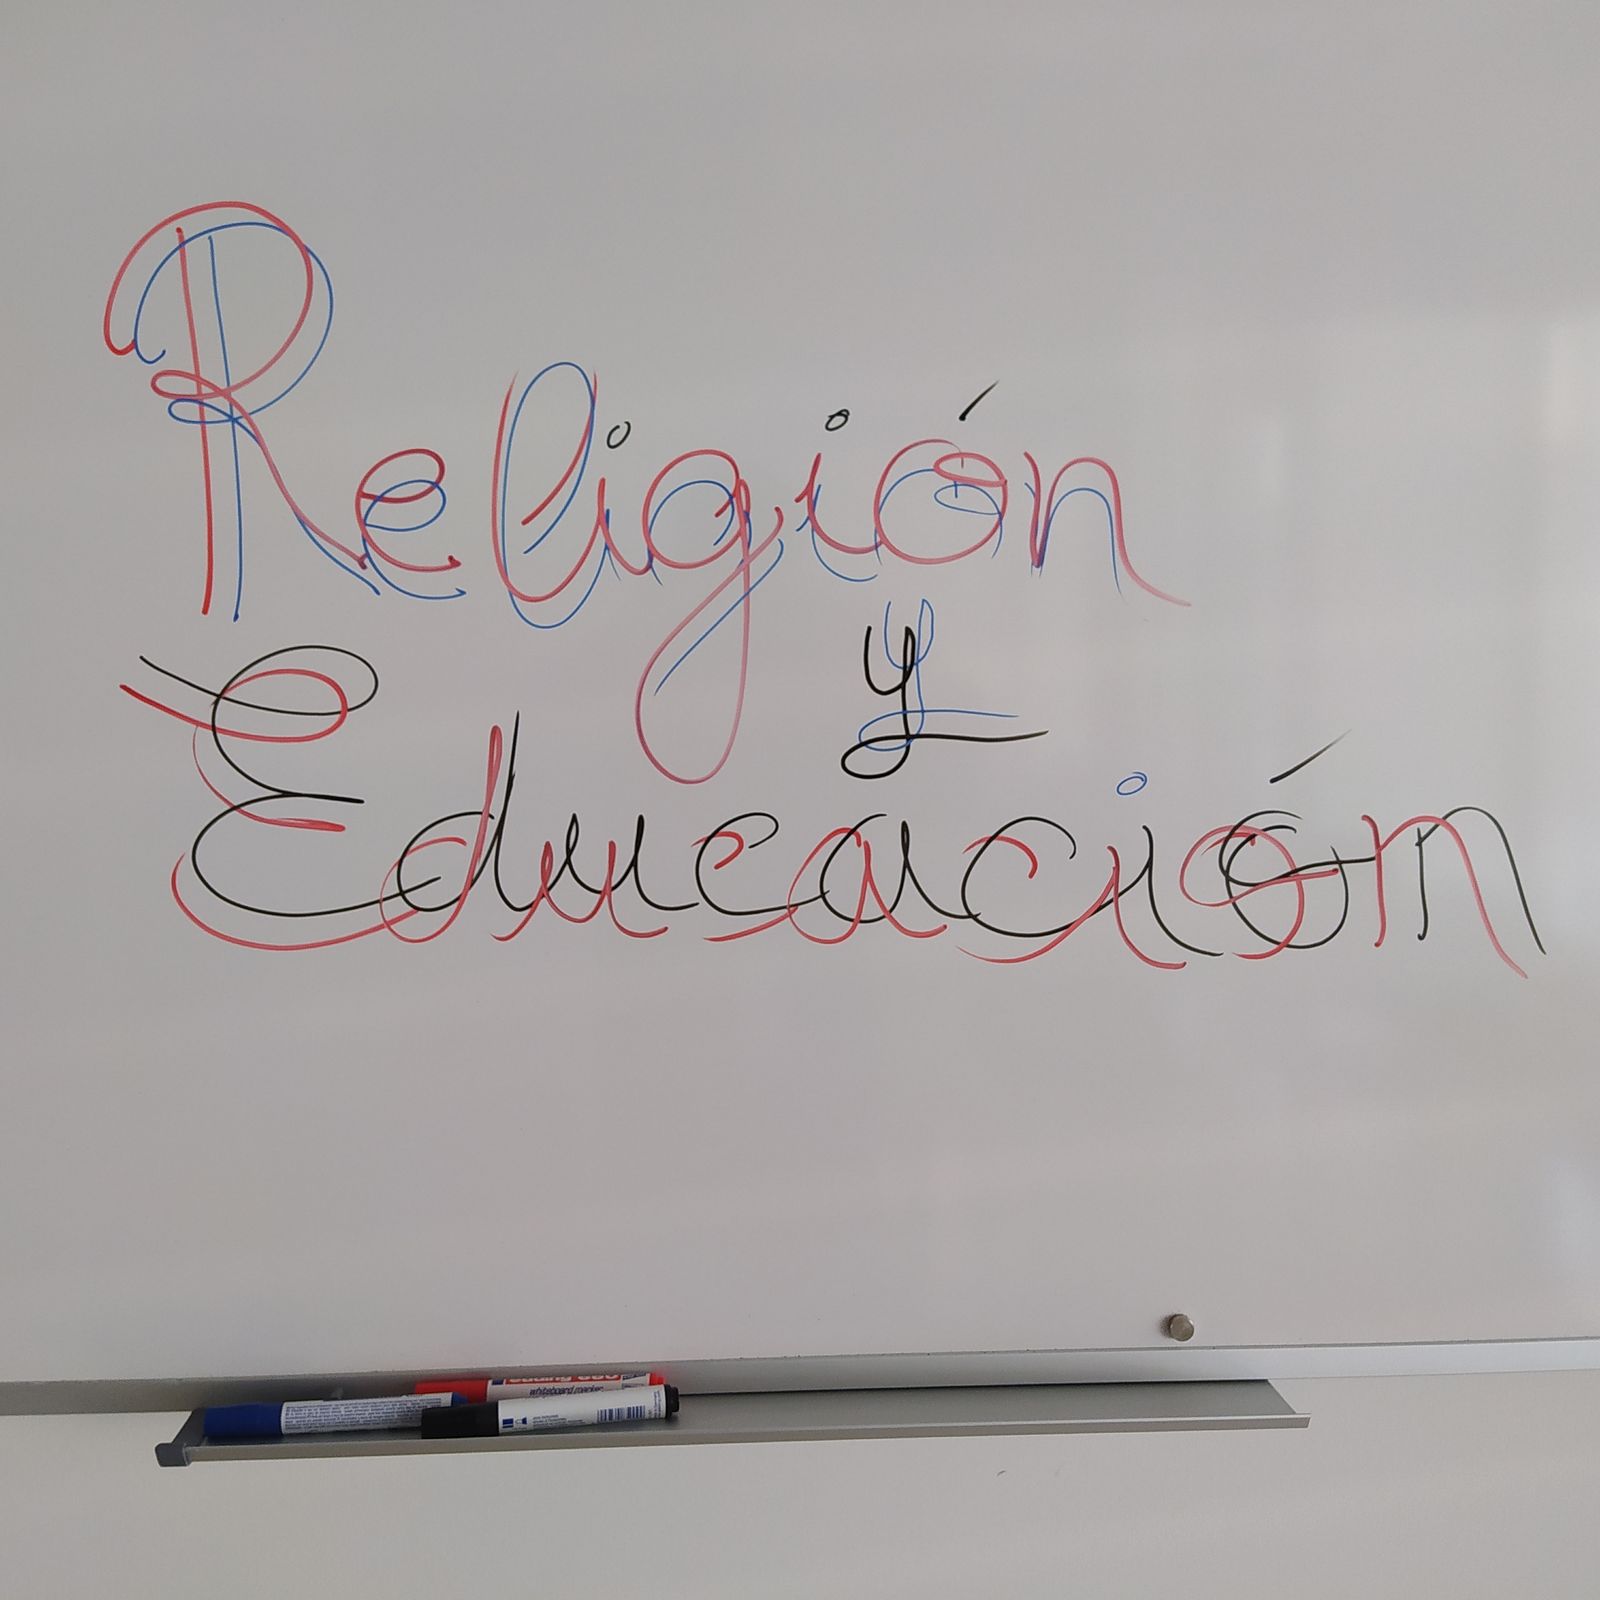 Religión
y
Educación
whiteboard marker